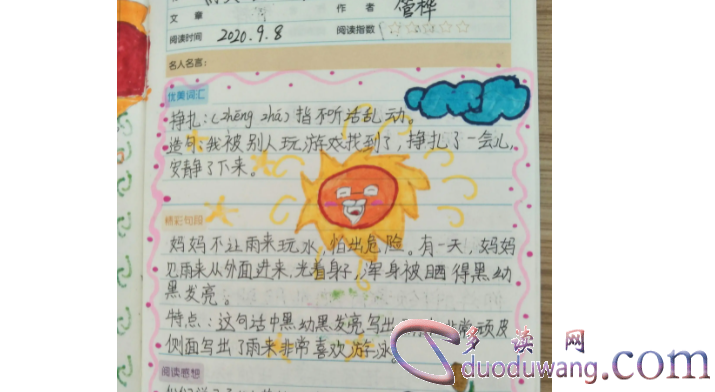 文 章
作 者 管桦
阅读时间 2020.9.8 阅读指数 ☆☆☆☆☆
名人名言:
优美词汇
挣扎:(zhēng zhá)指不听话乱动。
造句:我被别人玩游戏找到了,挣扎了一会儿,
安静了下来。
精彩句段
妈妈不让雨来玩水,怕出危险。有一天,妈妈
见雨来从外面进来,光着身子,浑身被晒得黑幼
黑发亮。
特点:这句话中黑幼黑发亮写出 非常顽皮
侧面写出了雨来非常喜欢游泳
阅读感想
多读网
duoduwang.com